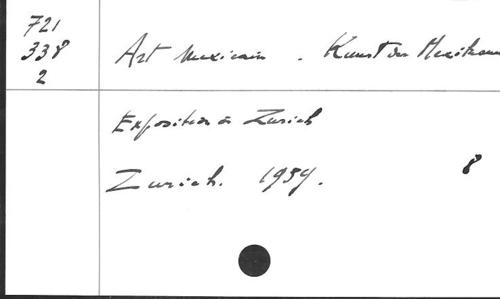 721
338
2
Art Mexicain . Kunst der Mexikaner
Exposition à Zurich
Zurich. 1959.
8